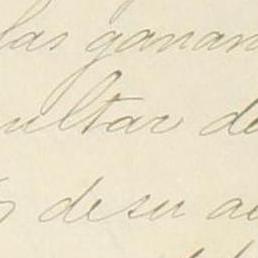 las ganan
ultar de
de su a